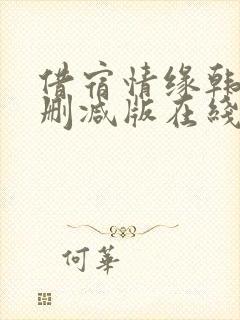 借宿情缘韩
删减版在线
何華